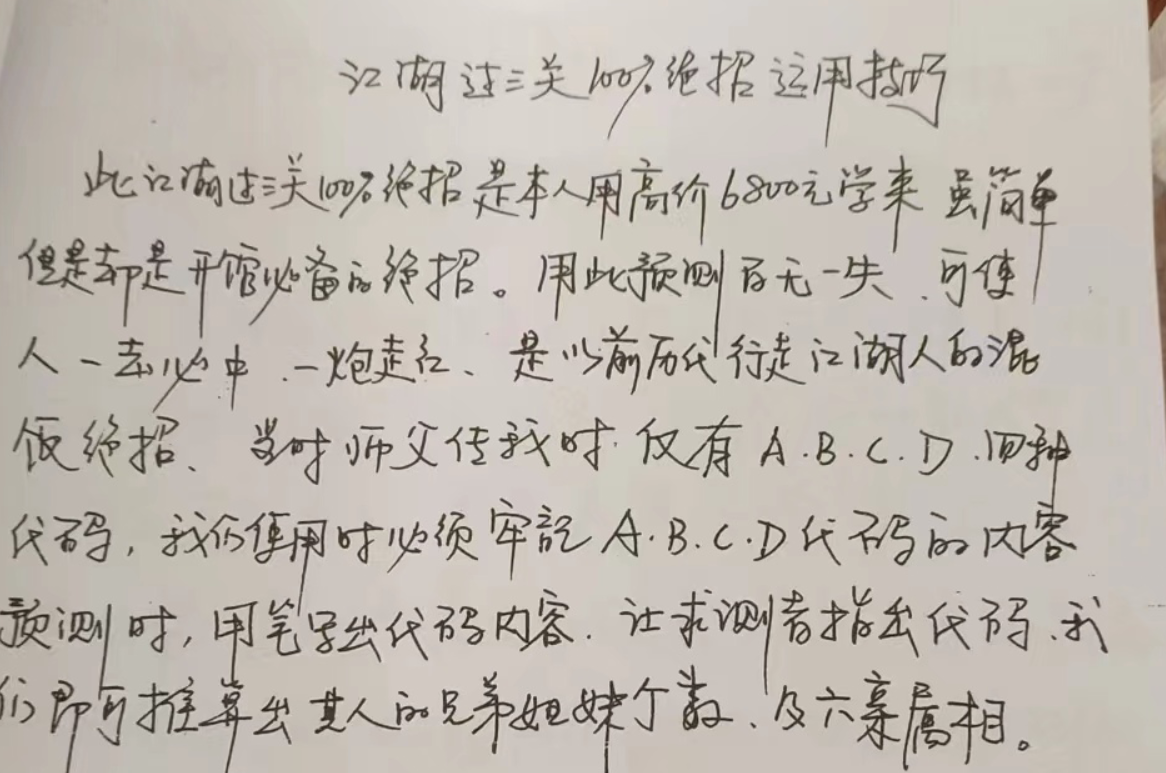 江湖过三关100%绝招运用技巧
此江湖过三关100%绝招是本人用高价6800元学来 虽简单
但是却是开馆必备的绝招。用此预测百无一失、可使
人一去必中、一炮走红、是以前历代行走江湖人的混
饭绝招、当时师父传我时.仅有A.B.C.D.四种
代码，我们使用时必须牢记A.B.C.D代码的内容
预测时，用笔写出代码内容.让求测者指出代码、我
们即可推算出其人的兄弟姐妹个数、及六亲属相。